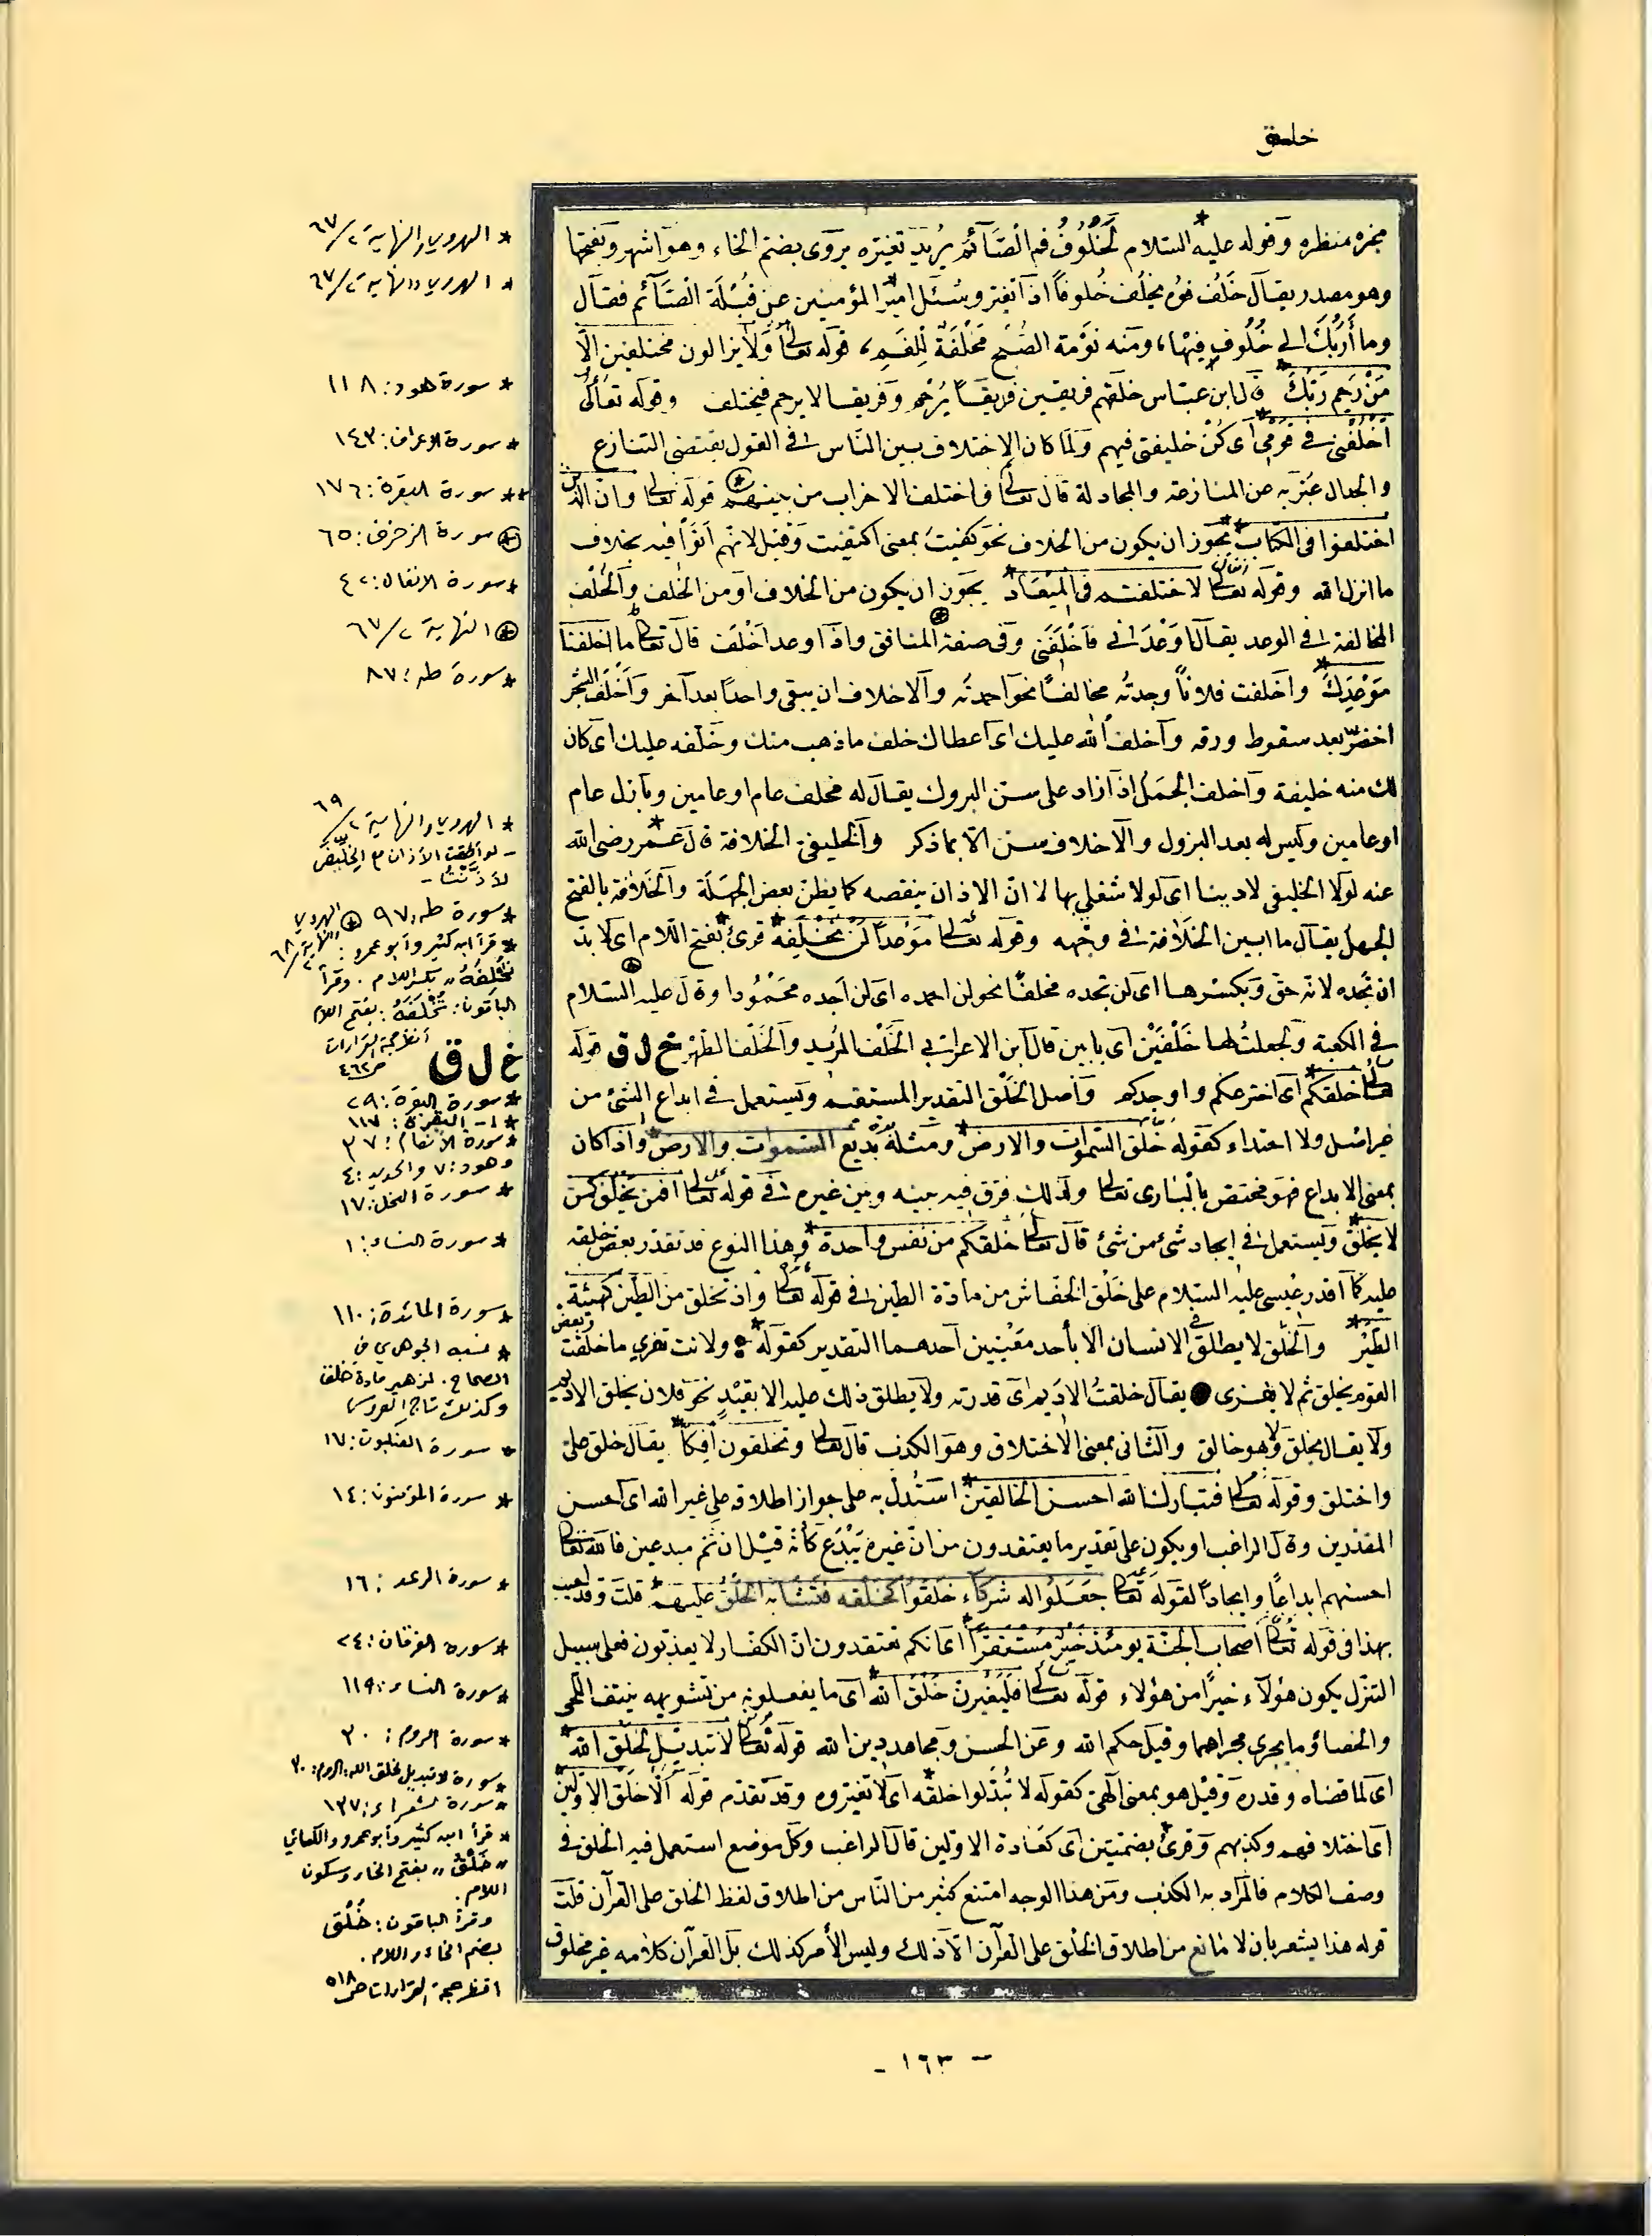 خلق
مخبره منظره وقوله عليه السلام لَخُلُوفُ فم الصَّآئم يُريد تغيّره يروى بضم الخاء وهو أشهر وبفتحها
وهو مصدر يقال خَلَف فوه يخلُف خُلوفًا اذا تغير وسُئل امير المؤمنين عن قُبْلَة الصَّآئم فقال
وما أَرَبُكَ الى خُلُوفِ فيها، ومنه نَوْمة الضُّحى مَخْلَفَةٌ للفم، قوله تعالى ولا يزالون مختلفين الّا
مَنْ رَحِمَ رَبُّكَ قال ابن عبّاس خلقهم فريقين فريقًا يُرْحم وفريقا لا يرحم فيختلف وقوله تعالى
اخْلُفْنى فى قومى اى كُنْ خليفتى فيهم ولمّا كان الاختلاف بين النّاس فى القول يقتضى التنازع
والجدال عُبّر به عن المنازعة والمجادلة قال تعالى فاختلف الاحزاب من بينهم قوله تعالى وانّ الذين
اختلفوا فى الكتاب يجوز ان يكون من الخلاف نحو كفيتُ بمعنى اكتفيت وقيل لانهم أتَوْا فيه بخلاف
ما انزل الله وقوله تعالى لاختلفتم فى المِيْعَاد يجوز ان يكون من الخلاف او من الخُلف والخُلف
المخالفة فى الوعد يقال وَعَدَنى فَأخْلَفَنى وفى صفة المنافق واذا وعد اخْلَفَ قال تعالى ما اخلفنا
مَوْعِدَكَ واخلفت فلانًا وجدتُه مخالفًا نحو احمدتُه والاخلاف ان يسقى واحدًا بعد آخر وأخْلَفَ الشجر
اخضرّ بعد سقوط ورقه واخلف الله عليك اى اعطاك خلف ما ذهب منك وخَلَفَه عليك اى كان
لك منه خليفة واخلف الجَمَلُ اذا زاد على سن البزول يقال له مخلف عام او عامين وبازل عام
او عامين وليس له بعد البزول والاخلاف سن الا بما ذكر والخليفى الخلافة قال عمر رضى الله
عنه لولا الخليفى لاذّنت اى لولا شغلى بها لا انّ الاذان ينقصه كما يظن بعض الجهلة والخَلَافة بالفتح
الجهل يقال ما ابين الخَلَافة فى وجهه وقوله تعالى مَوْعِدًا لَنْ تُخْلَفَه قرئ بفتح اللام اى لا بدّ
ان تجده لانه حقّ وبكسرها اى لن تجده مخلفًا نحو لن احمده اى لن اجده مَحْمُودا وقال عليه السلام
فى الكعبة ولجعلتُ لها خَلْفَيْن اى بابين قال ابن الاعرابى الخَلْف المِرْبد والخَلْف الظهر خ ل ق قوله
تعالى خلقكم اى اخترعكم واوجدكم واصل الخَلْق التقدير المستقيم ويستعمل فى ابداع الشئ من
غير اصل ولا احتذاء كقوله خلق السموات والارض ومثله بَدِيع السموات والارض واذا كان
بمعنى الابداع فهو مختص بالبارى تعالى ولذلك فرق فيه بينه وبين غيره فى قوله تعالى افمن يَخْلُق كمن
لا يخلق ويستعمل فى ايجاد شئ من شئ قال تعالى خلقكم من نفس واحدة وهذا النوع قد تقدّر بعض خلقه
عليه كما اقدر عيسى عليه السلام على خَلْق الخفّاش من مادّة الطين فى قوله تعالى واذ تخلق من الطين كهيئة
الطَّيْر والخَلْق لا يطلق فى الانسان الا بأحد معنيين احدهما التقدير كقوله ولانت تفرى ما خلقت وبعض
القوم يخلق ثم لا يفرى يقال خلقتُ الاديم اى قدرته ولا يطلق ذلك عليه الا بقيْدٍ نحو فلان يخلق الاديم
ولا يقال يخلق ولا هو خالق والثانى بمعنى الاختلاق وهو الكذب قال تعالى وتخلقون افكًا يقال خلق علىّ
واختلق وقوله تعالى فتبارك الله احسن الخالقين استُدل به على جواز اطلاقه على غير الله اى احسن
المقدّرين وقال الراغب او يكون على تقدير ما يعتقدون من انّ غيره يُبْدع كأنه قيل ان ثمّ مبدعين فالله تعالى
احسنهم ابداعًا وايجادًا لقوله تعالى جعلوا لله شركاء خلقوا كخلقه فتشابه الخلق عليهم قلت وقد اجيب
بهذا فى قوله تعالى اصحاب الجنّة يومئذ خير مُسْتقرًّا اى انكم تعتقدون انّ الكفار لا يعذبون فعلى سبيل
التنزل يكون هؤلاء خيرًا من هؤلاء قوله تعالى فليغيرنّ خَلْقَ الله اى ما يفعلونه من تشويهه بنتف اللحى
والخصاء وما يجرى مجراهما وقيل حكم الله وعن الحسن ومجاهد دين الله قوله تعالى لا تبديل لخلق الله
اى لما قضاه وقدره وقيل هو بمعنى النهى كقوله لا تُبدّلوا خلقه اى لا تغيّروه وقد تقدّم قوله الّا خلق الاولين
اى اختلافهم وكذبهم وقرئ بضمتين اى كعادة الاولين قال الراغب وكل موضع استعمل فيه الخلق فى
وصف الكلام فالمراد به الكذب ومن هذا الوجه امتنع كثير من النّاس من اطلاق لفظ الخلق على القرآن قلت
قوله هذا يشعر بان لا مانع من اطلاق الخلق على القرآن الّا ذلك وليس الأمر كذلك بل القرآن كلامه غير مخلوق
* الهروي والنهاية ٢/٦٧
* الهروي والنهاية ٢/٦٧
* سورة هود: ١١٨
* سورة الاعراف: ١٤٢
** سورة البقرة: ١٧٦
⊛ سورة الزخرف: ٦٥
* سورة الانفال: ٤٢
⊛ النهاية ٢/٦٧
* سورة طه: ٨٧
* الهروي والنهاية ٢/٦٩
- لو أطقت الأذان مع الخِلِّيفَى
لأذَّنْتُ -
* سورة طه: ٩٧ ⊛ الهروي
والنهاية ٢/٦٨
* قرأ ابن كثير وأبو عمرو:
تُخْلِفَهُ بكسر اللام. وقرأ
الباقون: تُخْلَفَهُ: بفتح اللام
أنظر حجة القراءات
ص ٤٦٢
خ ل ق
* سورة البقرة: ٢٩
* ١- البقرة: ١١٧
* سورة الأنعام: ٧٣
وهود: ٧ والحديد: ٤
* سورة النحل: ١٧
* سورة النساء: ١
* سورة المائدة: ١١٠
* نسبه الجوهري في
الصحاح. لزهير مادة خلق
وكذلك تاج العروس
* سورة العنكبوت: ١٧
* سورة المؤمنون: ١٤
* سورة الرعد: ١٦
* سورة الفرقان: ٢٤
* سورة النساء: ١١٩
* سورة الروم: ٣٠
* سورة لا تبديل لخلق الله: الروم: ٣٠
* سورة الشعراء: ١٣٧
* قرأ ابن كثير وأبو عمرو والكسائي
" خَلْقُ " بفتح الخاء وسكون
اللام.
وقرأ الباقون: خُلُق
بضم الخاء واللام.
انظر حجة القراءات ص ٥١٨
- ١٦٣ -